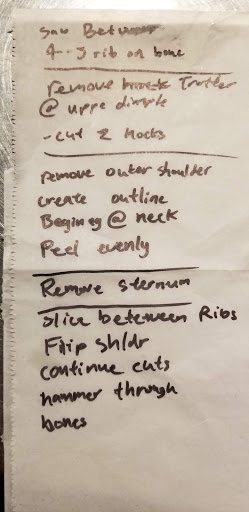 Saw Between
4-5 rib on bone
remove Trotter
@ uppe dimple
-cut 2 Hocks
remove outer shoulder
create outline
Begineg @ neck
Peel evenly
Remove sternum
slice beteween Ribs
Flip shldr
continue cuts
hammer through
bones